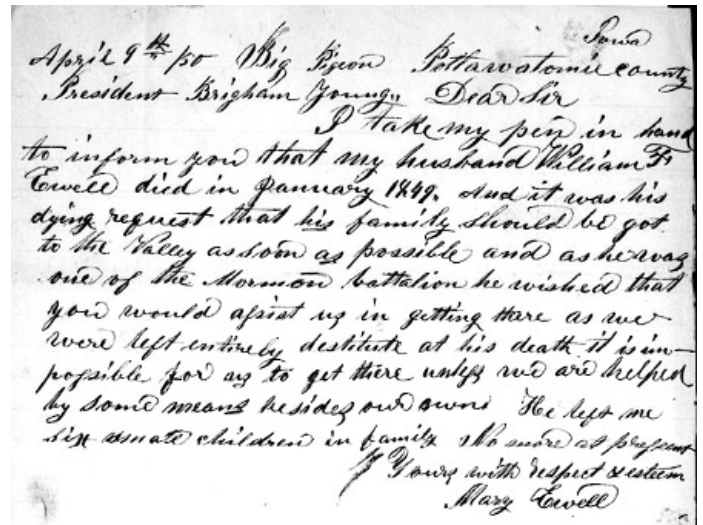 Iowa
April 9th /50 Big Pigeon Pottawatomie county
President Brigham Young,, Dear Sir
I take my pen in hand
to inform you that my husband William F
Ewell died in January 1849. And it was his
dying request that his family should be got
to the Valley as soon as possible and as he was
one of the Mormon battalion he wished that
you would assist us in getting there as we
were left entirely destitute at his death it is im-
possible for us to get there unless we are helped
by some means besides our own He left me
six children in family No more at present
Yours with respect & esteem
Mary Ewell